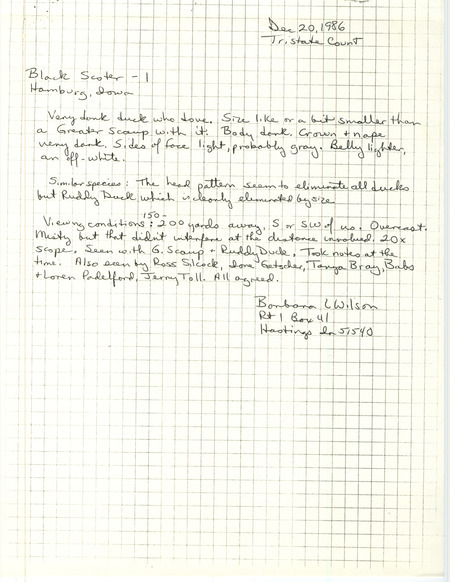 Dec 20, 1986
Tristate Count
Black Scoter - 1
Hamburg, Iowa
Very dark duck who dove. Size like or a bit smaller than
a Greater Scaup with it. Body dark. Crown + nape
very dark. Sides of face light, probably gray. Belly lighter,
an off-white.
Similar species: The head pattern seem to eliminate all ducks
but Ruddy Duck which is clearly eliminated by size
150-
Viewing conditions: 200 yards away, S or SW of us. Overcast.
Misty but that didn't interfere at the distance involved. 20x
scope. Seen with G. Scaup + Ruddy Duck. Took notes at the
time. Also seen by Ross Silcock, Tanya Bray, Babs
+ Loren Padelford, Jerry Toll. All agreed.
Barbara L Wilson
Rt 1 Box 41
Hastings Ia 51540